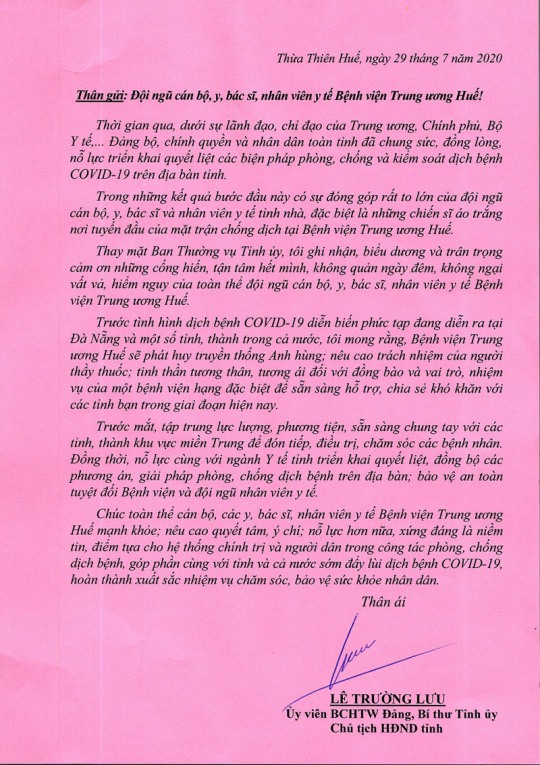 Thừa Thiên Huế, ngày 29 tháng 7 năm 2020
Thân gửi: Đội ngũ cán bộ, y, bác sĩ, nhân viên y tế Bệnh viện Trung ương Huế!
Thời gian qua, dưới sự lãnh đạo, chỉ đạo của Trung ương, Chính phủ, Bộ
Y tế,... Đảng bộ, chính quyền và nhân dân toàn tỉnh đã chung sức, đồng lòng,
nỗ lực triển khai quyết liệt các biện pháp phòng, chống và kiểm soát dịch bệnh
COVID-19 trên địa bàn tỉnh.
Trong những kết quả bước đầu này có sự đóng góp rất to lớn của đội ngũ
cán bộ, y, bác sĩ và nhân viên y tế tỉnh nhà, đặc biệt là những chiến sĩ áo trắng
nơi tuyến đầu của mặt trận chống dịch tại Bệnh viện Trung ương Huế.
Thay mặt Ban Thường vụ Tỉnh ủy, tôi ghi nhận, biểu dương và trân trọng
cảm ơn những cống hiến, tận tâm hết mình, không quản ngày đêm, không ngại
vất vả, hiểm nguy của toàn thể đội ngũ cán bộ, y, bác sĩ, nhân viên y tế Bệnh
viện Trung ương Huế.
Trước tình hình dịch bệnh COVID-19 diễn biến phức tạp đang diễn ra tại
Đà Nẵng và một số tỉnh, thành trong cả nước, tôi mong rằng, Bệnh viện Trung
ương Huế sẽ phát huy truyền thống Anh hùng; nêu cao trách nhiệm của người
thầy thuốc; tinh thần tương thân, tương ái đối với đồng bào và vai trò, nhiệm
vụ của một bệnh viện hạng đặc biệt để sẵn sàng hỗ trợ, chia sẻ khó khăn với
các tỉnh bạn trong giai đoạn hiện nay.
Trước mắt, tập trung lực lượng, phương tiện, sẵn sàng chung tay với các
tỉnh, thành khu vực miền Trung để đón tiếp, điều trị, chăm sóc các bệnh nhân.
Đồng thời, nỗ lực cùng với ngành Y tế tỉnh triển khai quyết liệt, đồng bộ các
phương án, giải pháp phòng, chống dịch bệnh trên địa bàn; bảo vệ an toàn
tuyệt đối Bệnh viện và đội ngũ nhân viên y tế.
Chúc toàn thể cán bộ, các y, bác sĩ, nhân viên y tế Bệnh viện Trung ương
Huế mạnh khỏe; nêu cao quyết tâm, ý chí; nỗ lực hơn nữa, xứng đáng là niềm
tin, điểm tựa cho hệ thống chính trị và người dân trong công tác phòng, chống
dịch bệnh, góp phần cùng với tỉnh và cả nước sớm đẩy lùi dịch bệnh COVID-19,
hoàn thành xuất sắc nhiệm vụ chăm sóc, bảo vệ sức khỏe nhân dân.
Thân ái
LÊ TRƯỜNG LƯU
Ủy viên BCHTW Đảng, Bí thư Tỉnh ủy
Chủ tịch HĐND tỉnh